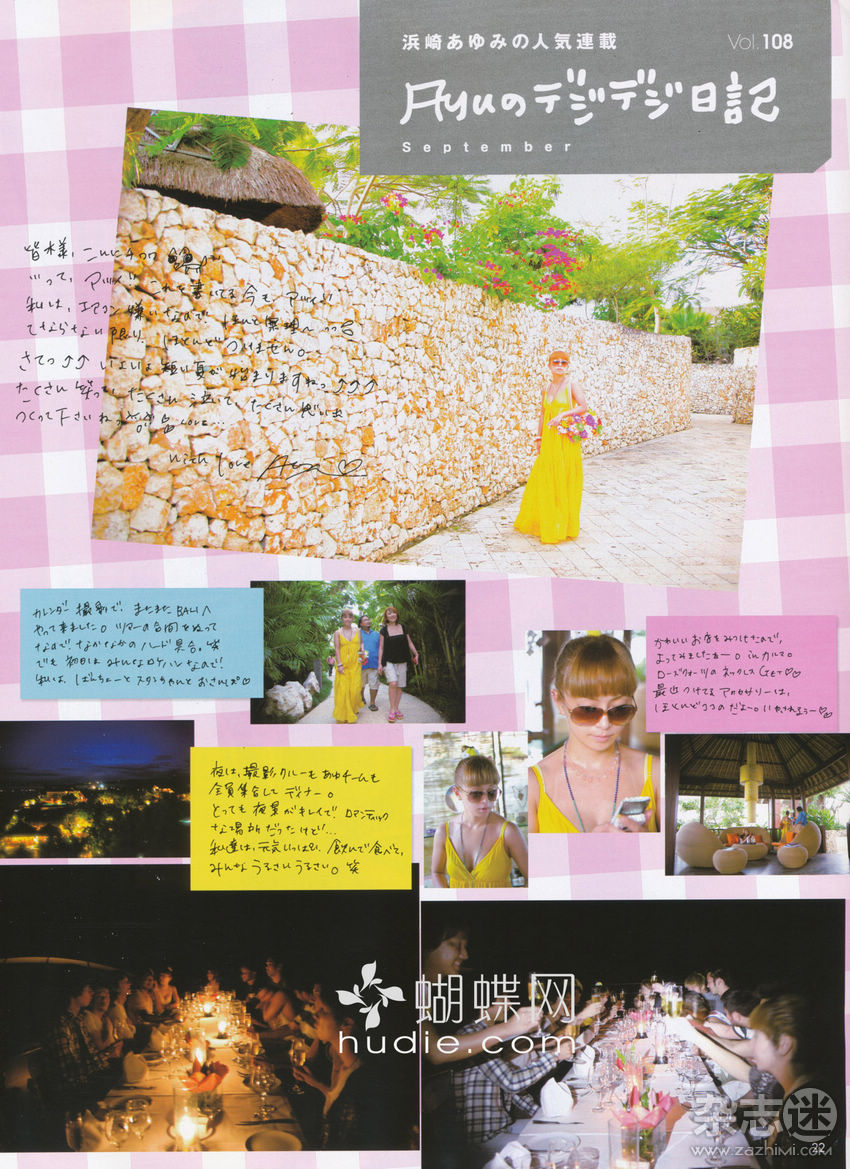 浜崎あゆみの人気連載
Vol.108
Ayuのデジデジ日記
September
皆様、こんにちワ
って、アツイ!! これを書いてる今もアツイ!!
私は、エアコン嫌いなので、ほんと
てならない限り、ほとんどつけません。
さてっ↗↗ いよいよ短い夏が始まりますねっ↗↗↗
たくさん笑って、たくさん泣いて、たくさん思い出
つくって下さいねっ LOVE...
with love Ayu♡
カレンダー撮影で、またまたBALIへ
やって来ました。ツアーの合間をぬって
なので、なかなかのハード具合。笑
でも初日はみんなロケハンなので!
私は、ばんちょーとスタンちゃんとおさんぽ♡
かわいいお店をみつけたので、
よってみましたぁー。in カルマ。
ローズクォーツのネックレスGET♡♡
最近つけてるアクセサリーは、
ほとんどココのだよー。いやされるぅー
夜は、撮影クルーもあゆチームも
全員集合してディナー。
とっても夜景がキレイで! ロマンティック
な場所だったけど!...
私達は、元気いっぱい、飲んで食べて、
みんなうるさいうるさい。笑
蝴蝶网
hudie.com
杂志迷
www.zazhimi.com
22